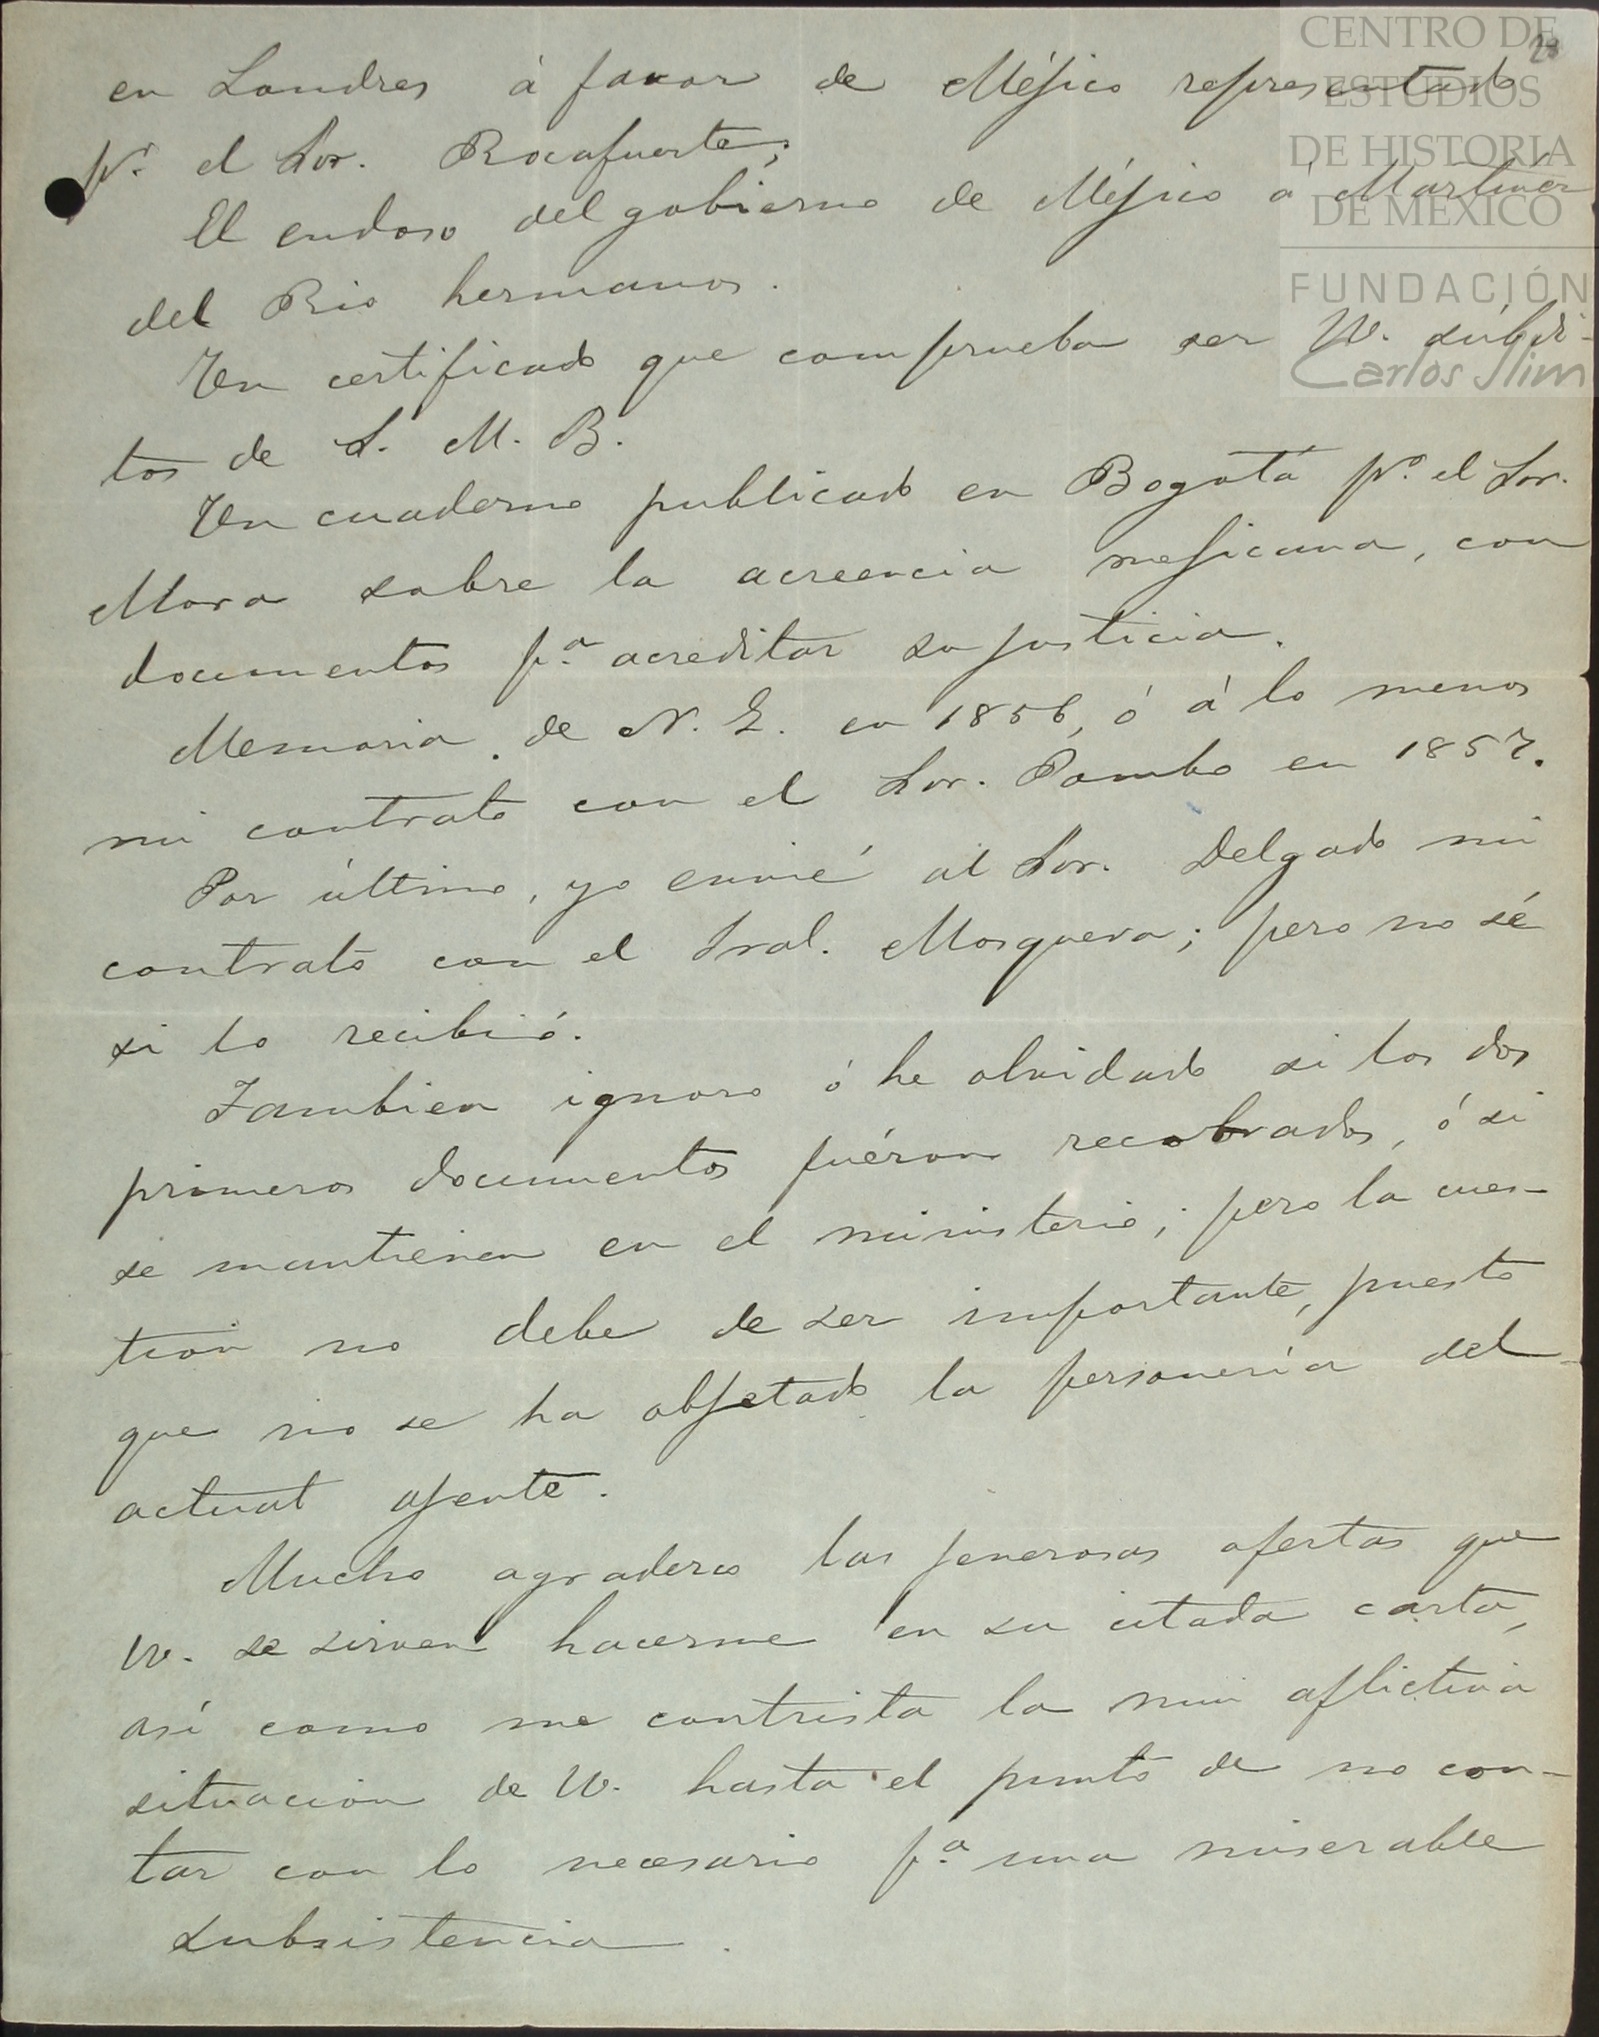 en Londres á favor de Méjico representado
pr. el Sor. Rocafuerte;
El endoso del gobierno de Méjico á Martínez
del Rio hermanos.
Un certificado que comprueba ser W. súbdi-
tos de S. M. B.
Un cuaderno publicado en Bogotá pr. el Sor.
Mora sobre la acreencia mejicana, con
documentos pa. acreditar su justicia.
Memoria de N. G. en 1856, ó á lo menos
mi contrato con el Sor. Pombo en 1857.
Por último, yo envié al Sor. Delgado mi
contrato con el Gral. Mosquera; pero no sé
si lo recibió.
Tambien ignoro ó he olvidado si los dos
primeros documentos fuéron recobrados, ó si
se mantienen en el ministerio; pero la cues-
tion no debe de ser importante, puesto
que no se ha objetado la personería del
actual ajente.
Mucho agradezco las jenerosas ofertas que
W. se sirven hacerme en su citada carta,
así como me contrista la mui aflictiva
situacion de W. hasta el punto de no con-
tar con lo necesario pa. una miserable
subsistencia.
CENTRO DE
ESTUDIOS
DE HISTORIA
DE MÉXICO
FUNDACIÓN
Carlos Slim